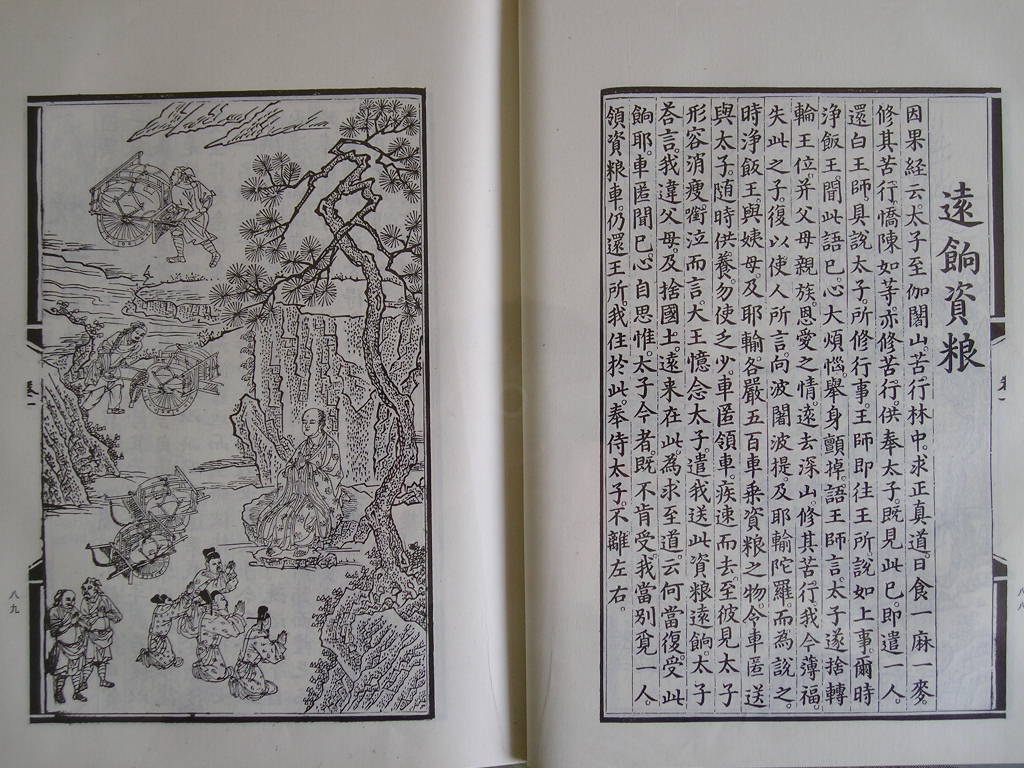 遠餉資粮
因果經云太子至伽闍山苦行林中。求正真道。日食一麻一麥。
修其苦行。憍陳如等亦修苦行。供奉太子。既見此已。即遣一人。
還白王師。具說太子。所修行事。王師即往王所。說如上事。爾時
淨飯王聞此語已。心大煩惱。舉身顫掉。語王師言。太子遂捨轉
輪王位。并父母親族恩愛之情。遠去深山。修其苦行。我今薄福。
失此之子。復以使人所言。向波闍波提。及耶輸陀羅。而為說之。
時淨飯王。與姨母。及耶輸。各嚴五百車乘資粮之物。令車匿送
與太子。隨時供養。勿使乏少。車匿領車。疾速而去。至彼見太子
形容消瘦。銜泣而言。大王憶念太子。遣我送此資粮遠餉。太子
荅言。我違父母。及捨國土。遠来在此。為求至道。云何當復受此
餉耶。車匿聞已。心自思惟。太子今者。既不肯受。我當別覓一人。
領資粮車。仍還王所。我住扵此。奉侍太子。不離左右。
卷一
八八
八九